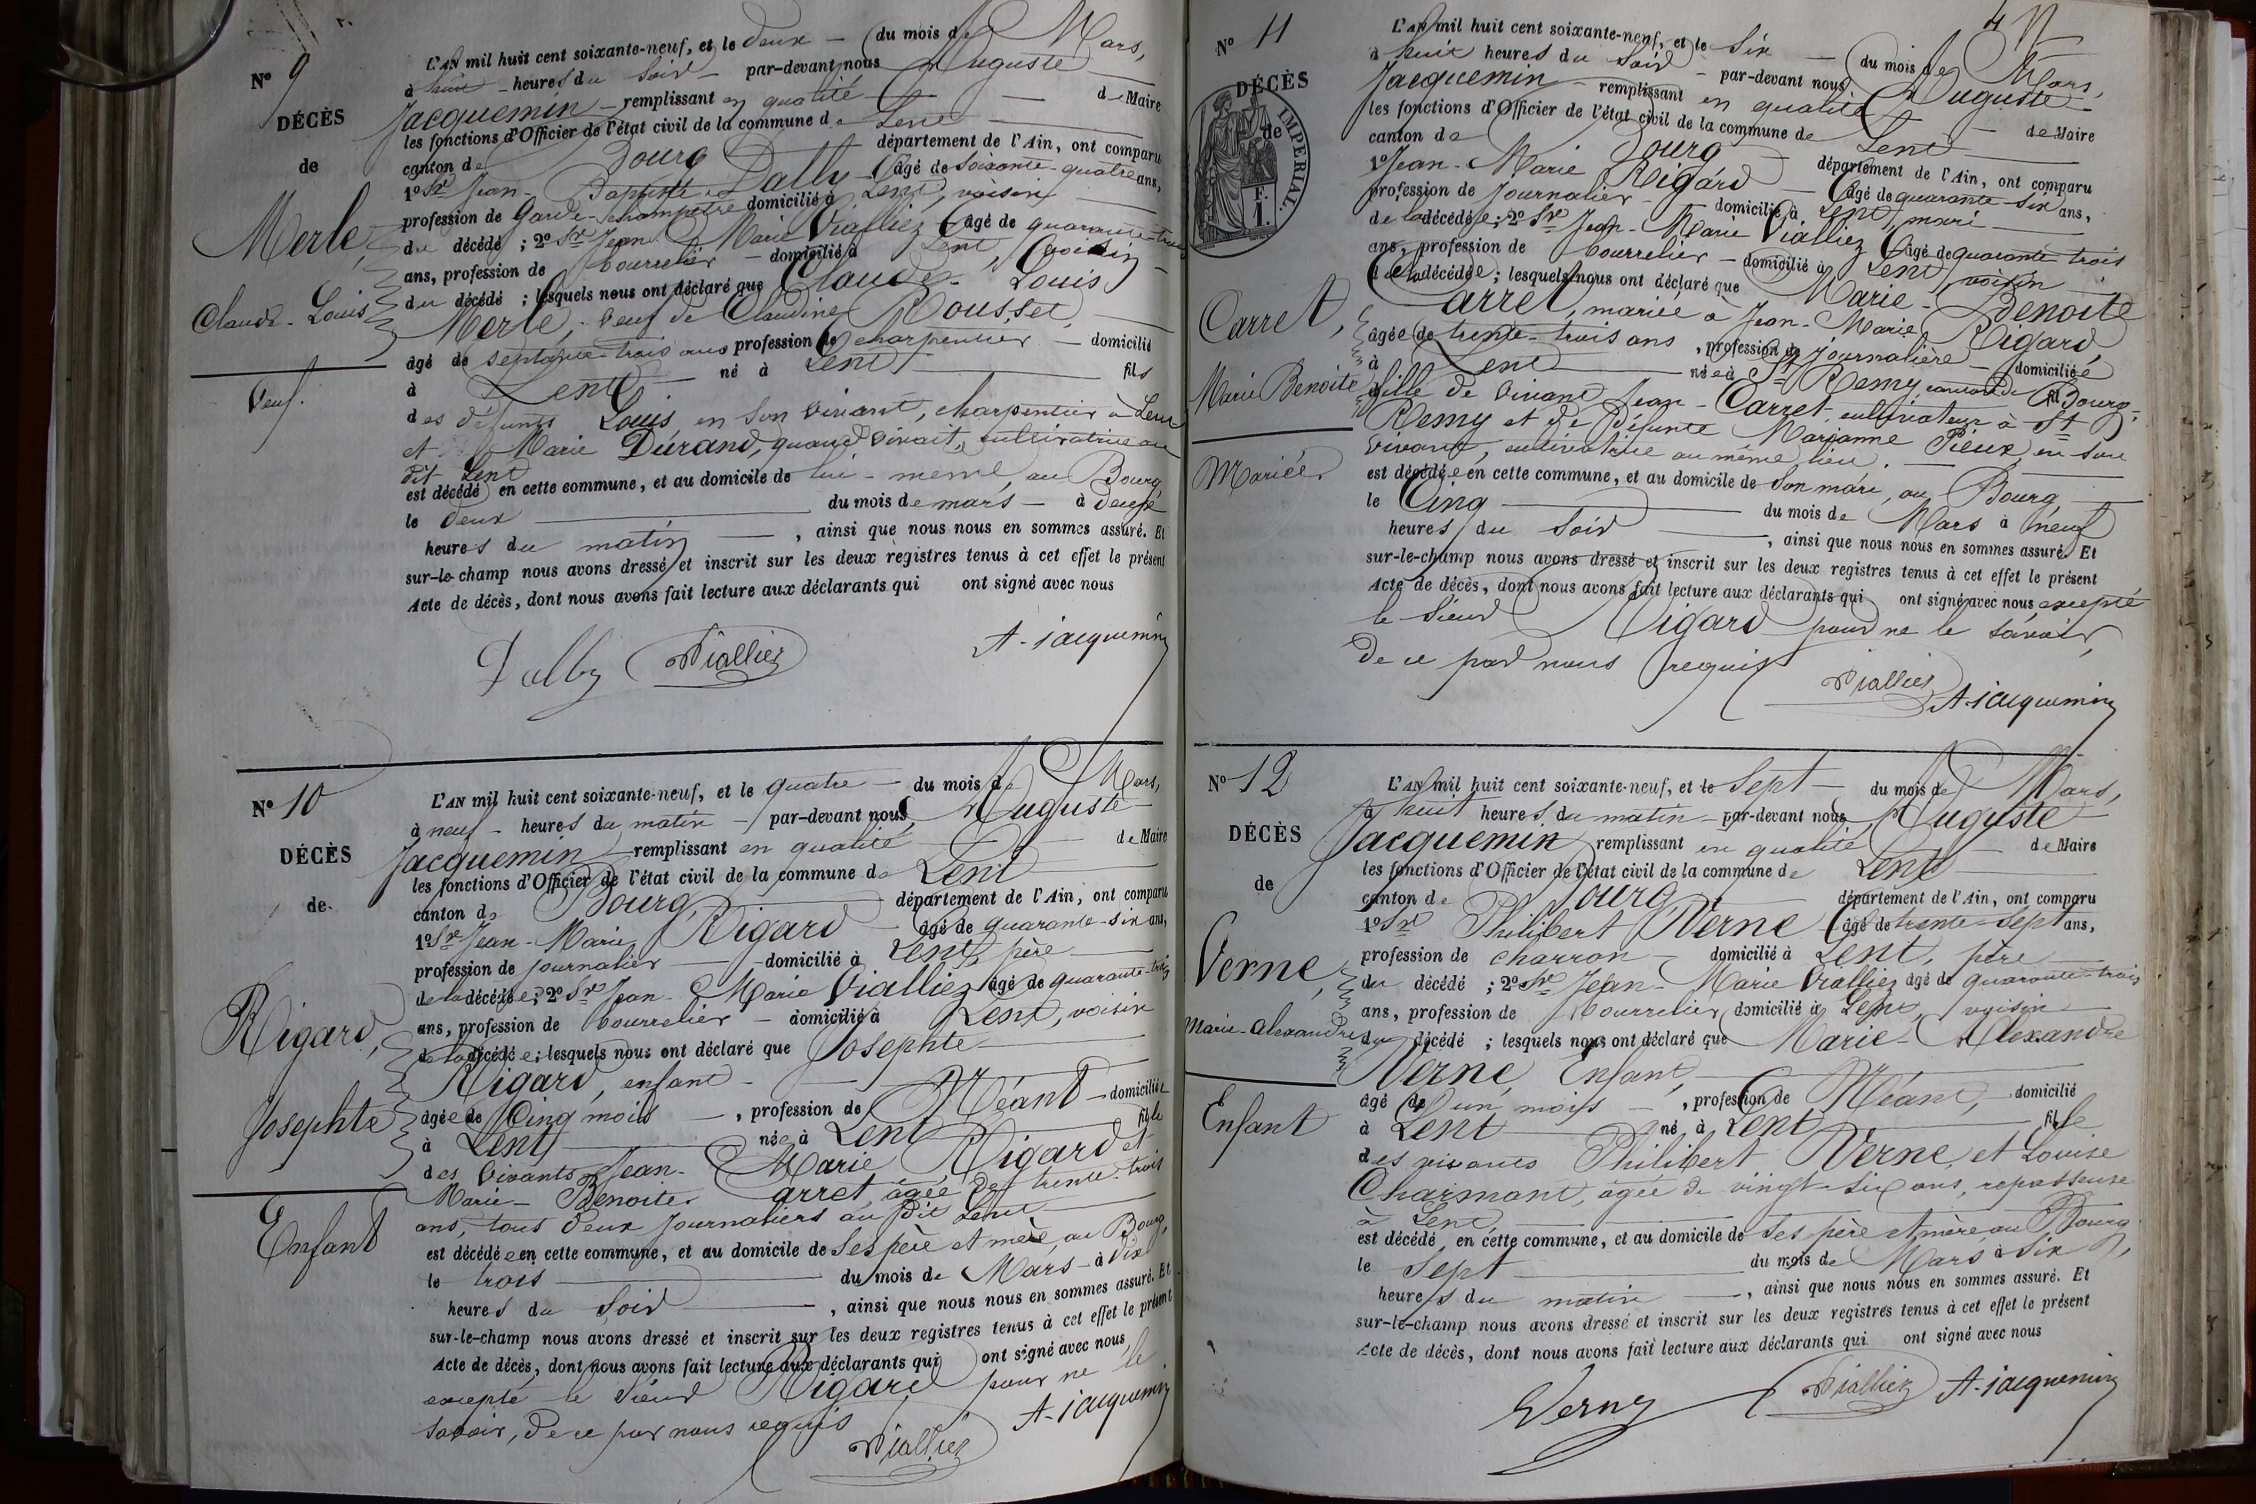 N° 9
DÉCÈS
de
Merle,
Claude-Louis
Veuf.
L'AN mil huit cent soixante-neuf, et le deux — du mois de Mars,
à huit — heures du soir — par-devant nous Auguste
Jacquemin — remplissant en qualité — de Maire
les fonctions d'Officier de l'état civil de la commune de Lent
canton de Bourg département de l'Ain, ont comparu
1° Sr Jean-Baptiste Dalby âgé de soixante-quatre ans,
profession de Garde-champêtre domicilié à Lent, voisin
du décédé ; 2° Sr Jean Marie Vialliez âgé de quarante-trois
ans, profession de bourrelier — domicilié à Lent, voisin —
du décédé ; lesquels nous ont déclaré que Claude-Louis
Merle, veuf de Claudine Rousset,
âgé de septante-trois ans profession de charpentier — domicilié
à Lent né à Lent fils
des défunts Louis, en son vivant, charpentier à Lent
et Marie Durand, quand vivait, cultivatrice au
dit Lent
est décédé en cette commune, et au domicile de lui-même, au Bourg,
le deux du mois de mars — à
heures du matin, ainsi que nous nous en sommes assuré. Et
sur-le-champ nous avons dressé et inscrit sur les deux registres tenus à cet effet le présent
Acte de décès, dont nous avons fait lecture aux déclarants qui ont signé avec nous
Dalby Vialliez A. jacquemin
N° 10
DÉCÈS
de
Rigard,
Josephte
Enfant
L'AN mil huit cent soixante-neuf, et le quatre — du mois de Mars,
à neuf — heures du matin — par-devant nous Auguste
Jacquemin — remplissant en qualité — de Maire
les fonctions d'Officier de l'état civil de la commune de Lent
canton de Bourg département de l'Ain, ont comparu
1° Sr Jean-Marie Rigard — âgé de quarante-six ans,
profession de journalier — domicilié à Lent, père
de la décédée ; 2° Sr Jean-Marie Vialliez âgé de quarante-trois
ans, profession de bourrelier — domicilié à Lent, voisin
de la décédée ; lesquels nous ont déclaré que Josephte
Rigard, enfant —
âgée de Cinq mois —, profession de Néant — domiciliée
à Lent née à Lent fille
des vivants Jean-Marie Rigard et
Marie-Benoite Carret, âgée de trente-trois
ans, tous deux journaliers au dit Lent
est décédée en cette commune, et au domicile de ses père et mère, au Bourg,
le trois du mois de Mars — à dix
heures du soir, ainsi que nous nous en sommes assuré. Et
sur-le-champ nous avons dressé et inscrit sur les deux registres tenus à cet effet le présent
Acte de décès, dont nous avons fait lecture aux déclarants qui ont signé avec nous,
excepté le sieur Rigard pour ne le
savoir, de ce par nous requis
Vialliez A. jacquemin
N° 11
DÉCÈS
de
IMPERIAL.
F.
1.
Carret,
Marie Benoite
Mariée
L'AN mil huit cent soixante-neuf, et le six — du mois de Mars,
à huit heures du soir — par-devant nous Auguste
Jacquemin — remplissant en qualité — de Maire
les fonctions d'Officier de l'état civil de la commune de Lent
canton de Bourg département de l'Ain, ont comparu
1° Jean-Marie Rigard — âgé de quarante-six ans,
profession de journalier — domicilié à Lent, mari
de la décédée ; 2° Sr Jean-Marie Vialliez âgé de quarante-trois
ans, profession de bourrelier — domicilié à Lent, voisin
de la décédée ; lesquels nous ont déclaré que Marie-Benoite
Carret, mariée à Jean-Marie Rigard,
âgée de trente-trois ans, profession de journalière — domiciliée
à Lent née à St Remy, canton de Bourg,
fille de vivant Jean-Carret, cultivateur à St
Remy et de défunte Marianne Pieux, en son
vivant, cultivatrice au même lieu. —
est décédée en cette commune, et au domicile de son mari, au Bourg
le Cinq du mois de Mars à neuf
heures du soir, ainsi que nous nous en sommes assuré. Et
sur-le-champ nous avons dressé et inscrit sur les deux registres tenus à cet effet le présent
Acte de décès, dont nous avons fait lecture aux déclarants qui ont signé avec nous excepté
le sieur Rigard pour ne le savoir,
de ce par nous requis
Vialliez A. jacquemin
N° 12
DÉCÈS
de
Verne,
Marie-Alexandre
Enfant
L'AN mil huit cent soixante-neuf, et le Sept — du mois de Mars,
à huit heures du matin — par-devant nous Auguste
Jacquemin remplissant en qualité — de Maire
les fonctions d'Officier de l'état civil de la commune de Lent
canton de Bourg département de l'Ain, ont comparu
1° Sr Philibert Verne âgé de trente-sept ans,
profession de charron — domicilié à Lent, père
du décédé ; 2° Sr Jean-Marie Vialliez âgé de quarante-trois
ans, profession de bourrelier domicilié à Lent, voisin
du décédé ; lesquels nous ont déclaré que Marie-Alexandre
Verne, Enfant,
âgé de un mois —, profession de Néant, domicilié
à Lent né à Lent fils
des vivants Philibert Verne, et Louise
Charmant, âgée de vingt-six ans, repasseuse
à Lent
est décédé en cette commune, et au domicile de ses père et mère au Bourg,
le Sept du mois de Mars à six
heures du matin, ainsi que nous nous en sommes assuré. Et
sur-le-champ nous avons dressé et inscrit sur les deux registres tenus à cet effet le présent
Acte de décès, dont nous avons fait lecture aux déclarants qui ont signé avec nous
Verny Vialliez A. jacquemin